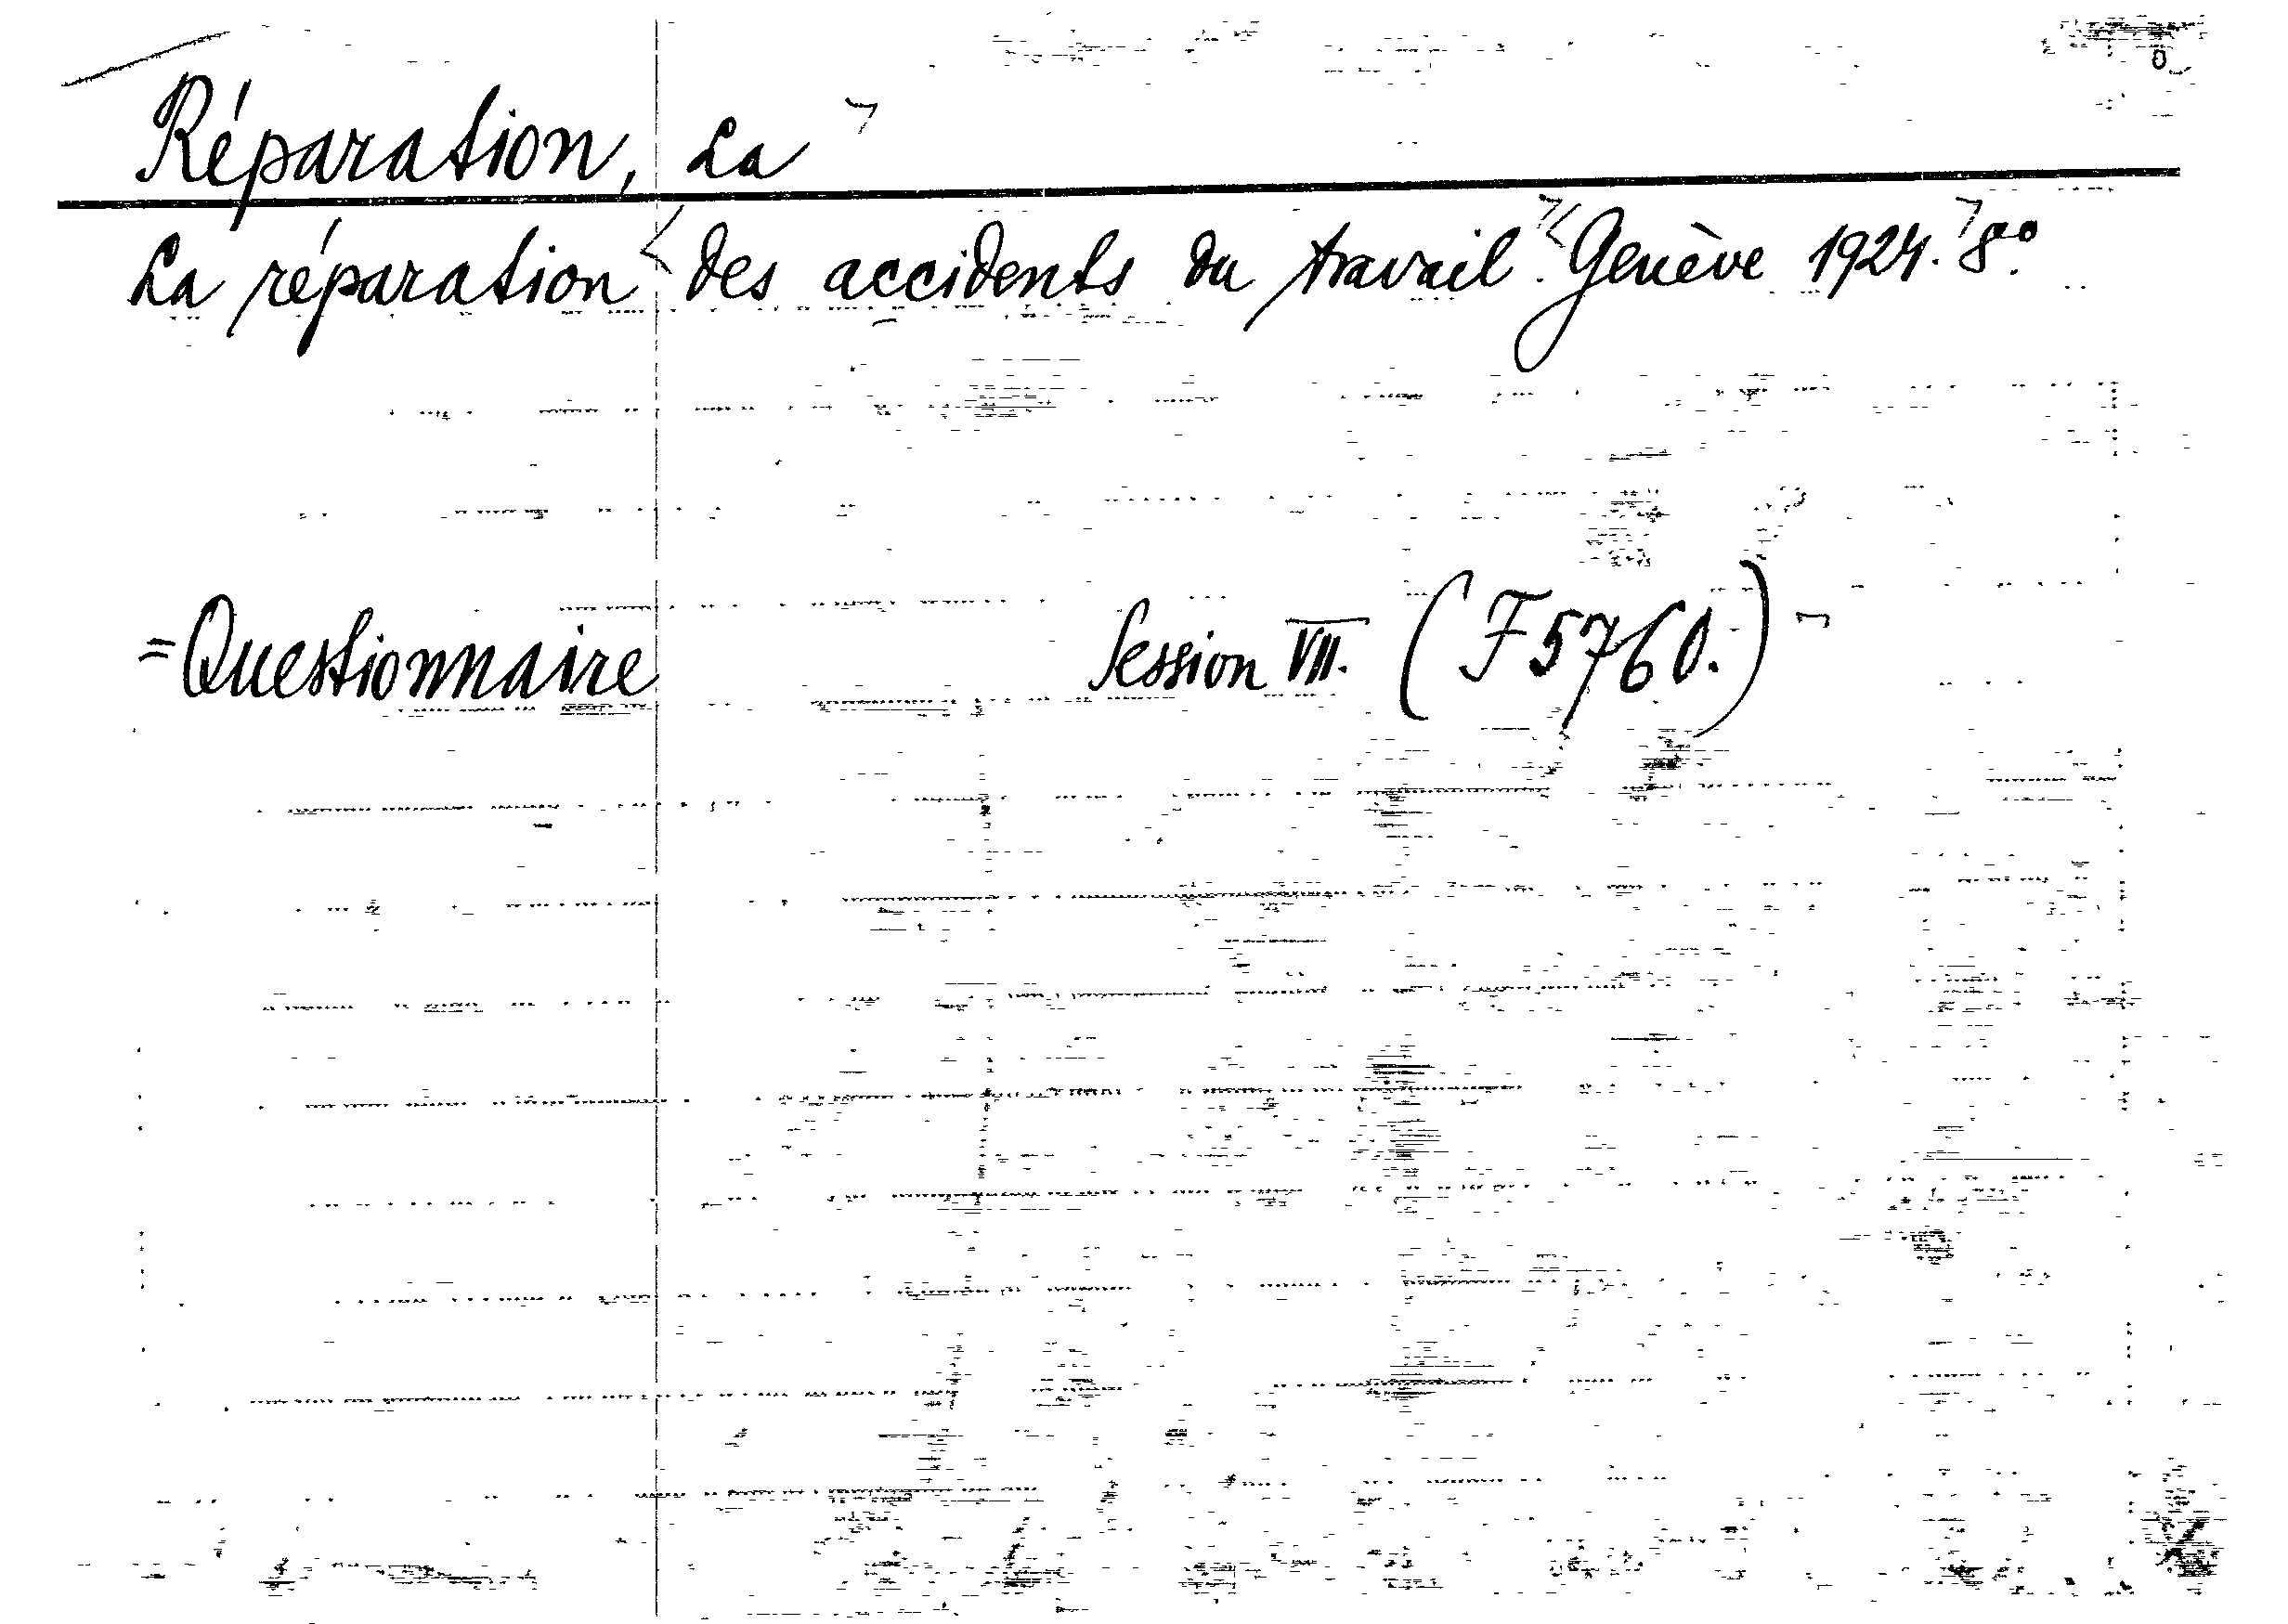 Réparation, La
La réparation des accidents du travail. Genève 1924. 8°.
=Questionnaire Session VII. (F5760.)